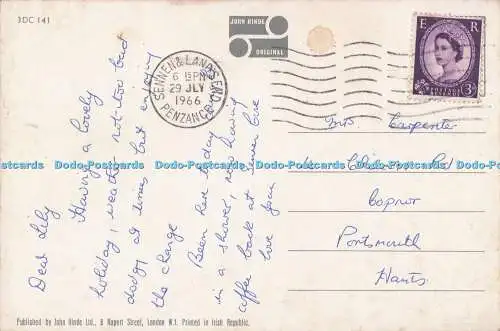 3DC 141
JOHN HINDE
ORIGINAL
SENNEN & LANDS END
6 15PM
29 JLY
1966
PENZANCE
E R
POSTAGE REVENUE
3D
Dear Lily
Having a lovely
holiday, weather not too bad
dodgy at times but enjoying
the change
Been here today
in a shower, now having
coffee back at
love from
Mrs Carpenter
Rd
Copnor
Portsmouth
Hants.
Dodo-Postcards Dodo-Postcards Dodo-Postcards Dodo-Postcards
Published by John Hinde Ltd., 8 Rupert Street, London W.1. Printed in Irish Republic.